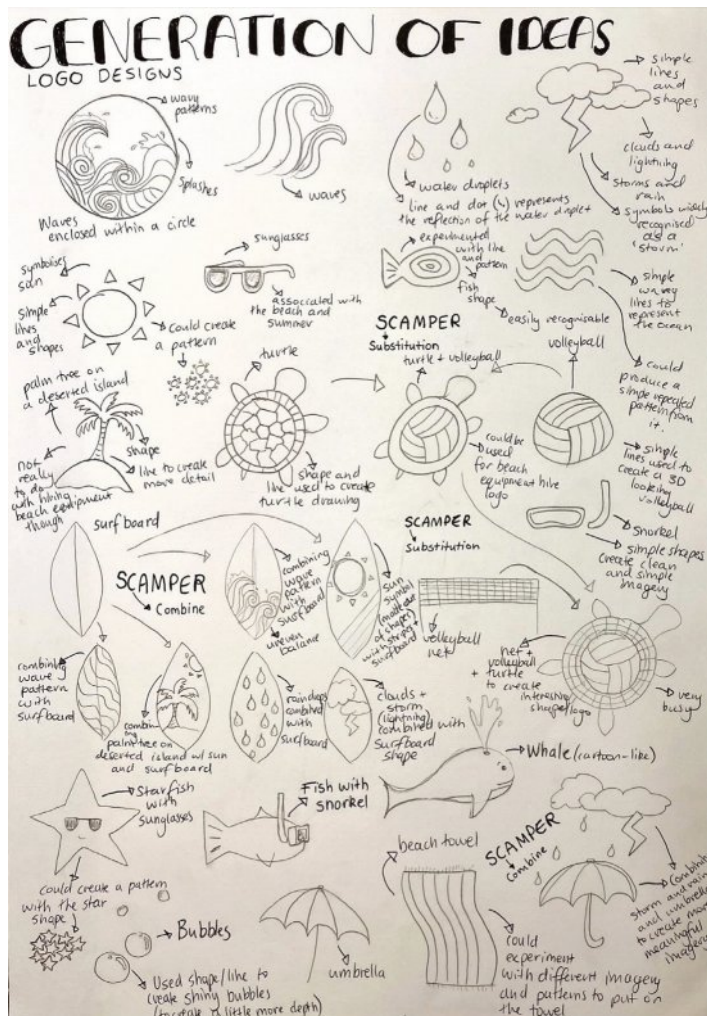 GENERATION OF IDEAS
LOGO DESIGNS
wavy
patterns
splashes
Waves
enclosed within a circle
waves
water droplets
line and dot
represents
the reflection of the water droplet
simple
lines
and
shapes
clouds and
lightning
storms and
rain
symbols widely
recognised
as a
'storm'
symbolises
sun
simple
lines
and
shapes
could create
a pattern
sunglasses
associated with
the beach and
summer
experimented
with line
and
pattern
fish
shape
easily recognisable
simple
wavy
lines to
represent
the ocean
could
produce a
simple repeated
pattern from
it.
palm tree on
a deserted island
not
really
to do
with hiring
beach equipment
though
shape
line to create
more detail
turtle
shape and
line used to create
turtle drawing
SCAMPER
Substitution
turtle + volleyball
could be
used
for beach
equipment hire
logo
volleyball
simple
lines used to
create a 3D
looking
volleyball
snorkel
simple shapes
create clean
and simple
imagery
surfboard
SCAMPER
Combine
combining
wave
pattern
with
surfboard
uneven
balance
sun
symbol
(made out
of shapes)
with stripes +
surfboard
SCAMPER
Substitution
volleyball
net
net +
volleyball
+ turtle
to create
interesting
shape/logo
very
busy
combining
wavy
pattern
with
surfboard
combining
palm tree on
deserted island w/ sun
and surfboard
raindrops
combined
with
surfboard
clouds +
storm
(lightning)
combined with
surfboard
shape
Whale (cartoon-like)
Starfish
with
sunglasses
could create a pattern
with the star
shape
Fish with
snorkel
Bubbles
Used shape/line to
create shiny bubbles
(to create a little more depth)
umbrella
beach towel
could
experiment
with different imagery
and patterns to put on
the towel
SCAMPER
Combine
combining
storm and rain
and umbrella
to create more
meaningful
imagery